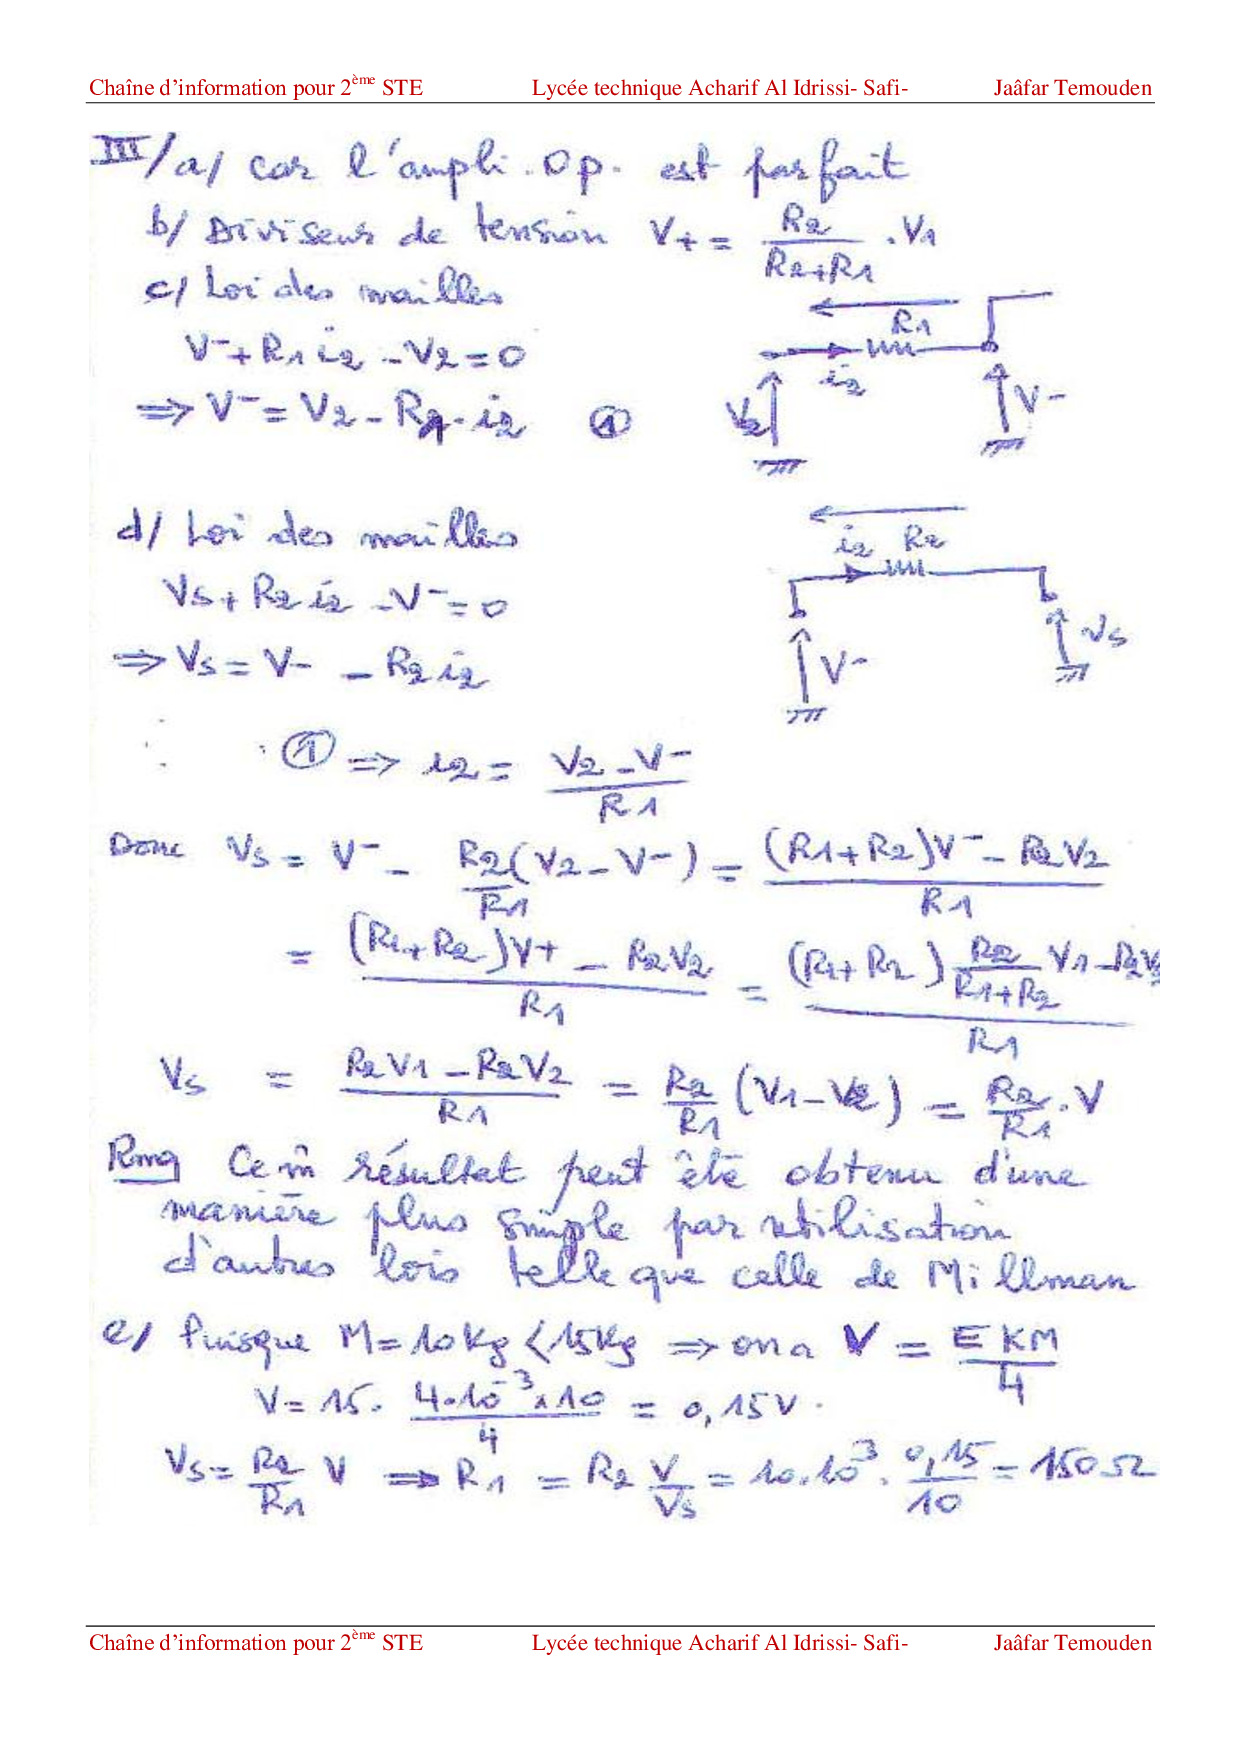 Chaîne d'information pour 2ème STE Lycée technique Acharif Al Idrissi- Safi- Jaâfar Temouden
III/a/ car l'ampli. Op. est parfait
b/ Diviseur de tension V+ = R2/(R2+R1) . V1
c/ Loi des mailles
R1
V- + R1 i2 - V2 = 0
i2
⇒ V- = V2 - R1 . i2 ①
V2
V-
d/ Loi des mailles
i2 R2
Vs + R2 i2 - V- = 0
⇒ Vs = V- - R2 i2
V-
Vs
① ⇒ i2 = (V2 - V-)/R1
Donc Vs = V- - R2/R1 (V2 - V-) = ((R1+R2)V- - R2V2)/R1
= ((R1+R2)V+ - R2V2)/R1 = ((R1+R2) R2/(R1+R2) V1 - R2V2)/R1
Vs = (R2V1 - R2V2)/R1 = R2/R1 (V1 - V2) = R2/R1 . V
Rmq Ce m̂ résultat peut êtê obtenu d'une
manière plus simple par utilisation
d'autres lois telle que celle de Millman
e/ Puisque M = 10Kg < 15Kg ⇒ on a V = E K M/4
V = 15 . 4.10-3 x 10/4 = 0,15V .
Vs = R2/R1 V ⇒ R1 = R2 V/Vs = 10.10^3 . 0,15/10 = 150Ω
Chaîne d'information pour 2ème STE Lycée technique Acharif Al Idrissi- Safi- Jaâfar Temouden